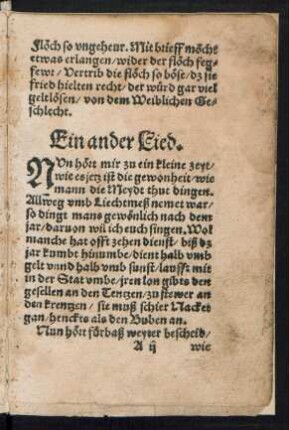 Flöch so vngeheur. Mit brieff möcht
etwas erlangen / wider der flöch feg-
fewr / Vertrib die flöch so böse / dz sie
fried hielten recht / der würd gar viel
geltlösen / von dem Weiblichen Ge-
schlecht.
Ein ander Lied.
NUn hört mir zu ein kleine zeyt /
wie es jetz ist die gewonheit / wie
mann die Meydt thut dingen.
Allweg vmb Liechtmeß nemet war /
so dingt mans gewönlich nach dem
jar / daruon wil ich euch singen. Wol
manche hat offt zehen dienst / biß dz
jar kumbt hinumbe / dient halb vmb
gelt vnnd halb vmb sunst / laufft mit
in der Stat vmbe / jren lon gibts den
gesellen an den Tentzen / zu stewer an
den krentzen / sie muß schier Nacket
gan / henckts als den Buben an.
Nun hört fürbaß weyter bescheid /
A ij wie